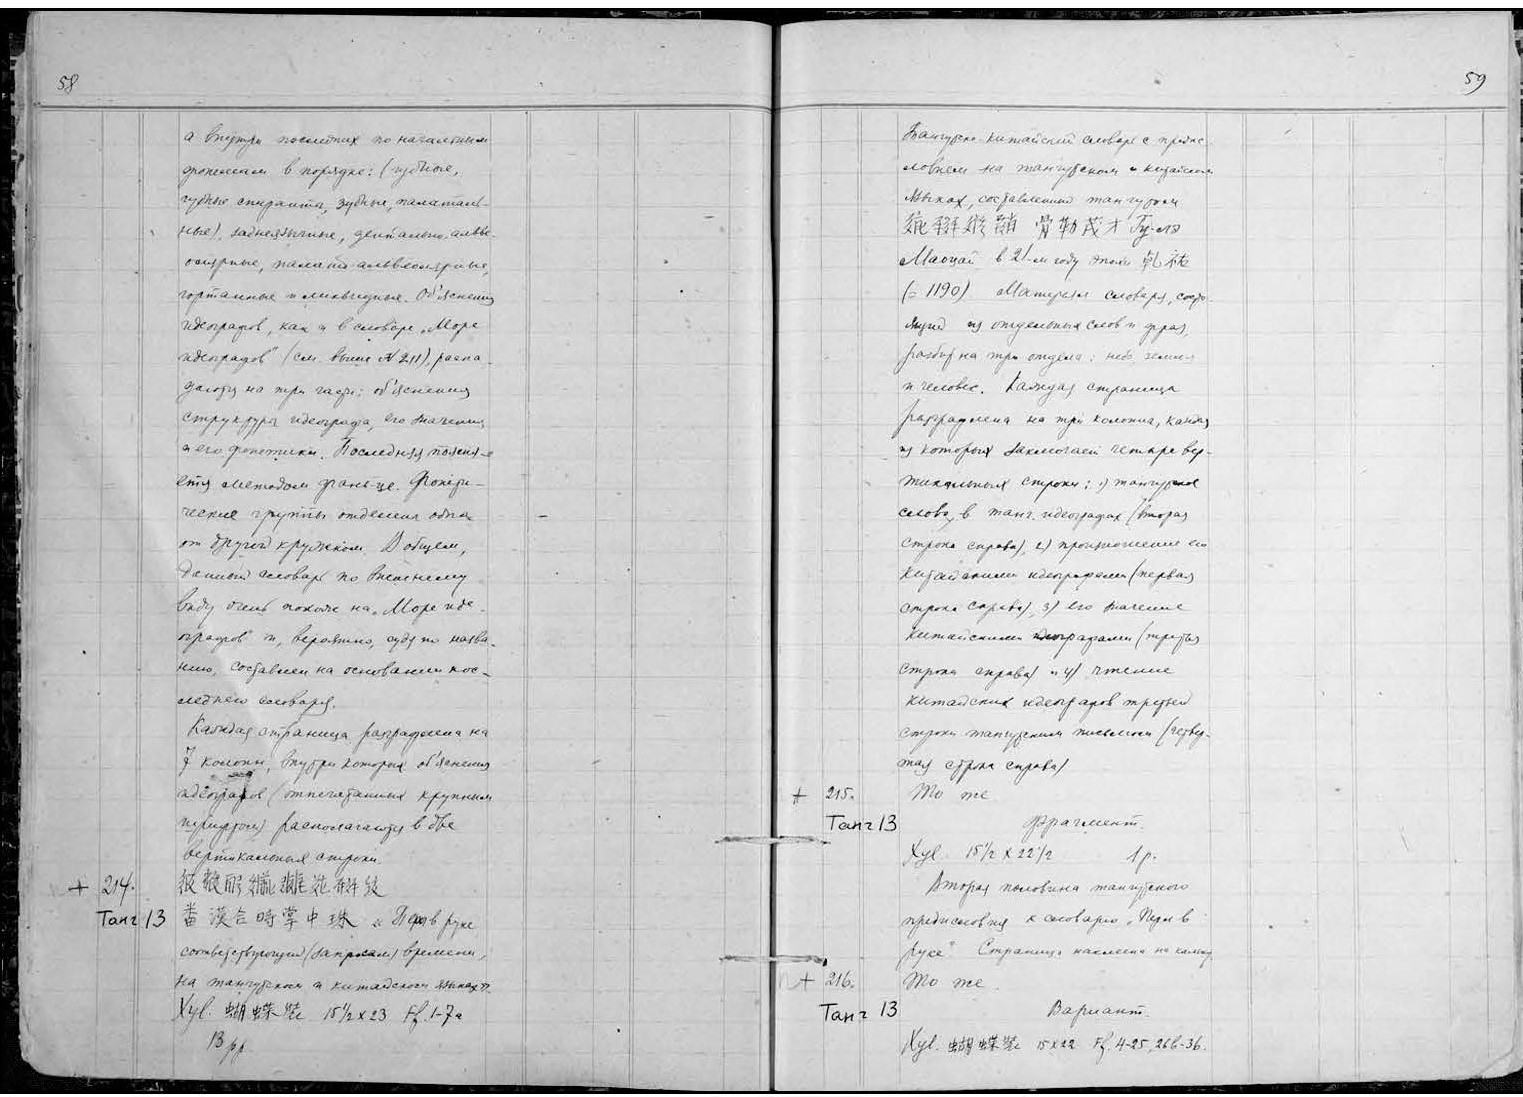 58
а внутри последних по начальным
фонемам в порядке: (губные,
губные спиранты, зубные, палаталь-
ные), заднеязычные, дентально-альве-
олярные, палато-альвеолярные,
гортанные и ликвидные. Объяснения
идеографов, как и в словаре „Море
идеографов" (см. выше N 211), распа-
даются на три части: объяснения
структуры идеографа, его значения
и его фонетики. Последняя поясня-
ется методом фань-це. Фонети-
ческие группы отделены одна
от другой кружком. В общем,
данный словарь по внешнему
виду очень похож на „Море иде-
ографов" и, вероятно, судя по назва-
нию, составлен на основании пос-
леднего словаря.
Каждая страница разграфлена на
7 колонн, внутри которых объяснения
идеографов (отпечатанных крупным
шрифтом) располагаются в две
вертикальные строки.
+ 214.
Танг 13 番漢合時掌中珠 „Перл в руке
соответствующий (запросам) времени,
на тангутском и китайском языках".
Xyl. 蝴蝶裝 15 1/2 x 23 Ff. 1-7a
13 pp
59
Тангутско-китайский словарь с предис-
ловием на тангутском и китайском
языках, составленный тангутом
骨勒茂才 Гу-лэ
Маоцай в 21-м году эпохи 乾祐
(= 1190) Материал словаря, состо-
ящий из отдельных слов и фраз,
разбит на три отдела: небо, земля
и человек. Каждая страница
разграфлена на три колонны, каждая
из которых заключает четыре вер-
тикальных строки: 1) тангутское
слово в танг. идеографах (вторая
строка справа), 2) произношение его
китайскими идеографами (первая
строка справа), 3) его значение
китайскими идеографами (третья
строка справа) и 4) чтение
китайских идеографов третьей
строки тангутским письмом (четвер-
тая строка справа)
+ 215. То же.
Танг 13 Фрагмент.
Xyl. 15 1/2 x 22 1/2 1 p.
Вторая половина тангутского
предисловия к словарю „Перл в
руке" Страница наклеена на кальку
+ 216. То же.
Танг 13 Вариант.
Xyl. 蝴蝶裝 15 x 22 Ff. 4-25, 26b-36.